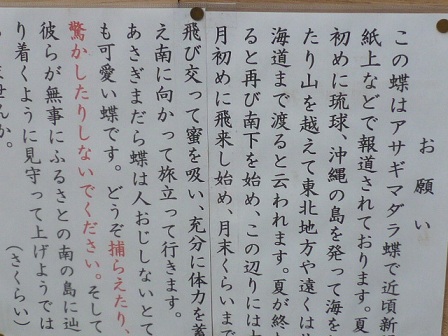 お願い
この蝶はアサギマダラ蝶で近頃新
紙上などで報道されております。夏
初めに琉球、沖縄の島を発って海を
たり山を越えて東北地方や遠くは
海道まで渡ると云われます。夏が終
ると再び南下を始め、この辺りには
月初めに飛来し始め、月末くらいまで
飛び交って蜜を吸い、充分に体力を蓄
え南に向かって旅立って行きます。
あさぎまだら蝶は人おじしないとて
も可愛い蝶です。どうぞ捕らえたり、
驚かしたりしないでください。そして
彼らが無事にふるさとの南の島に辿
り着くように見守って上げようでは
ませんか。
(さくらい)